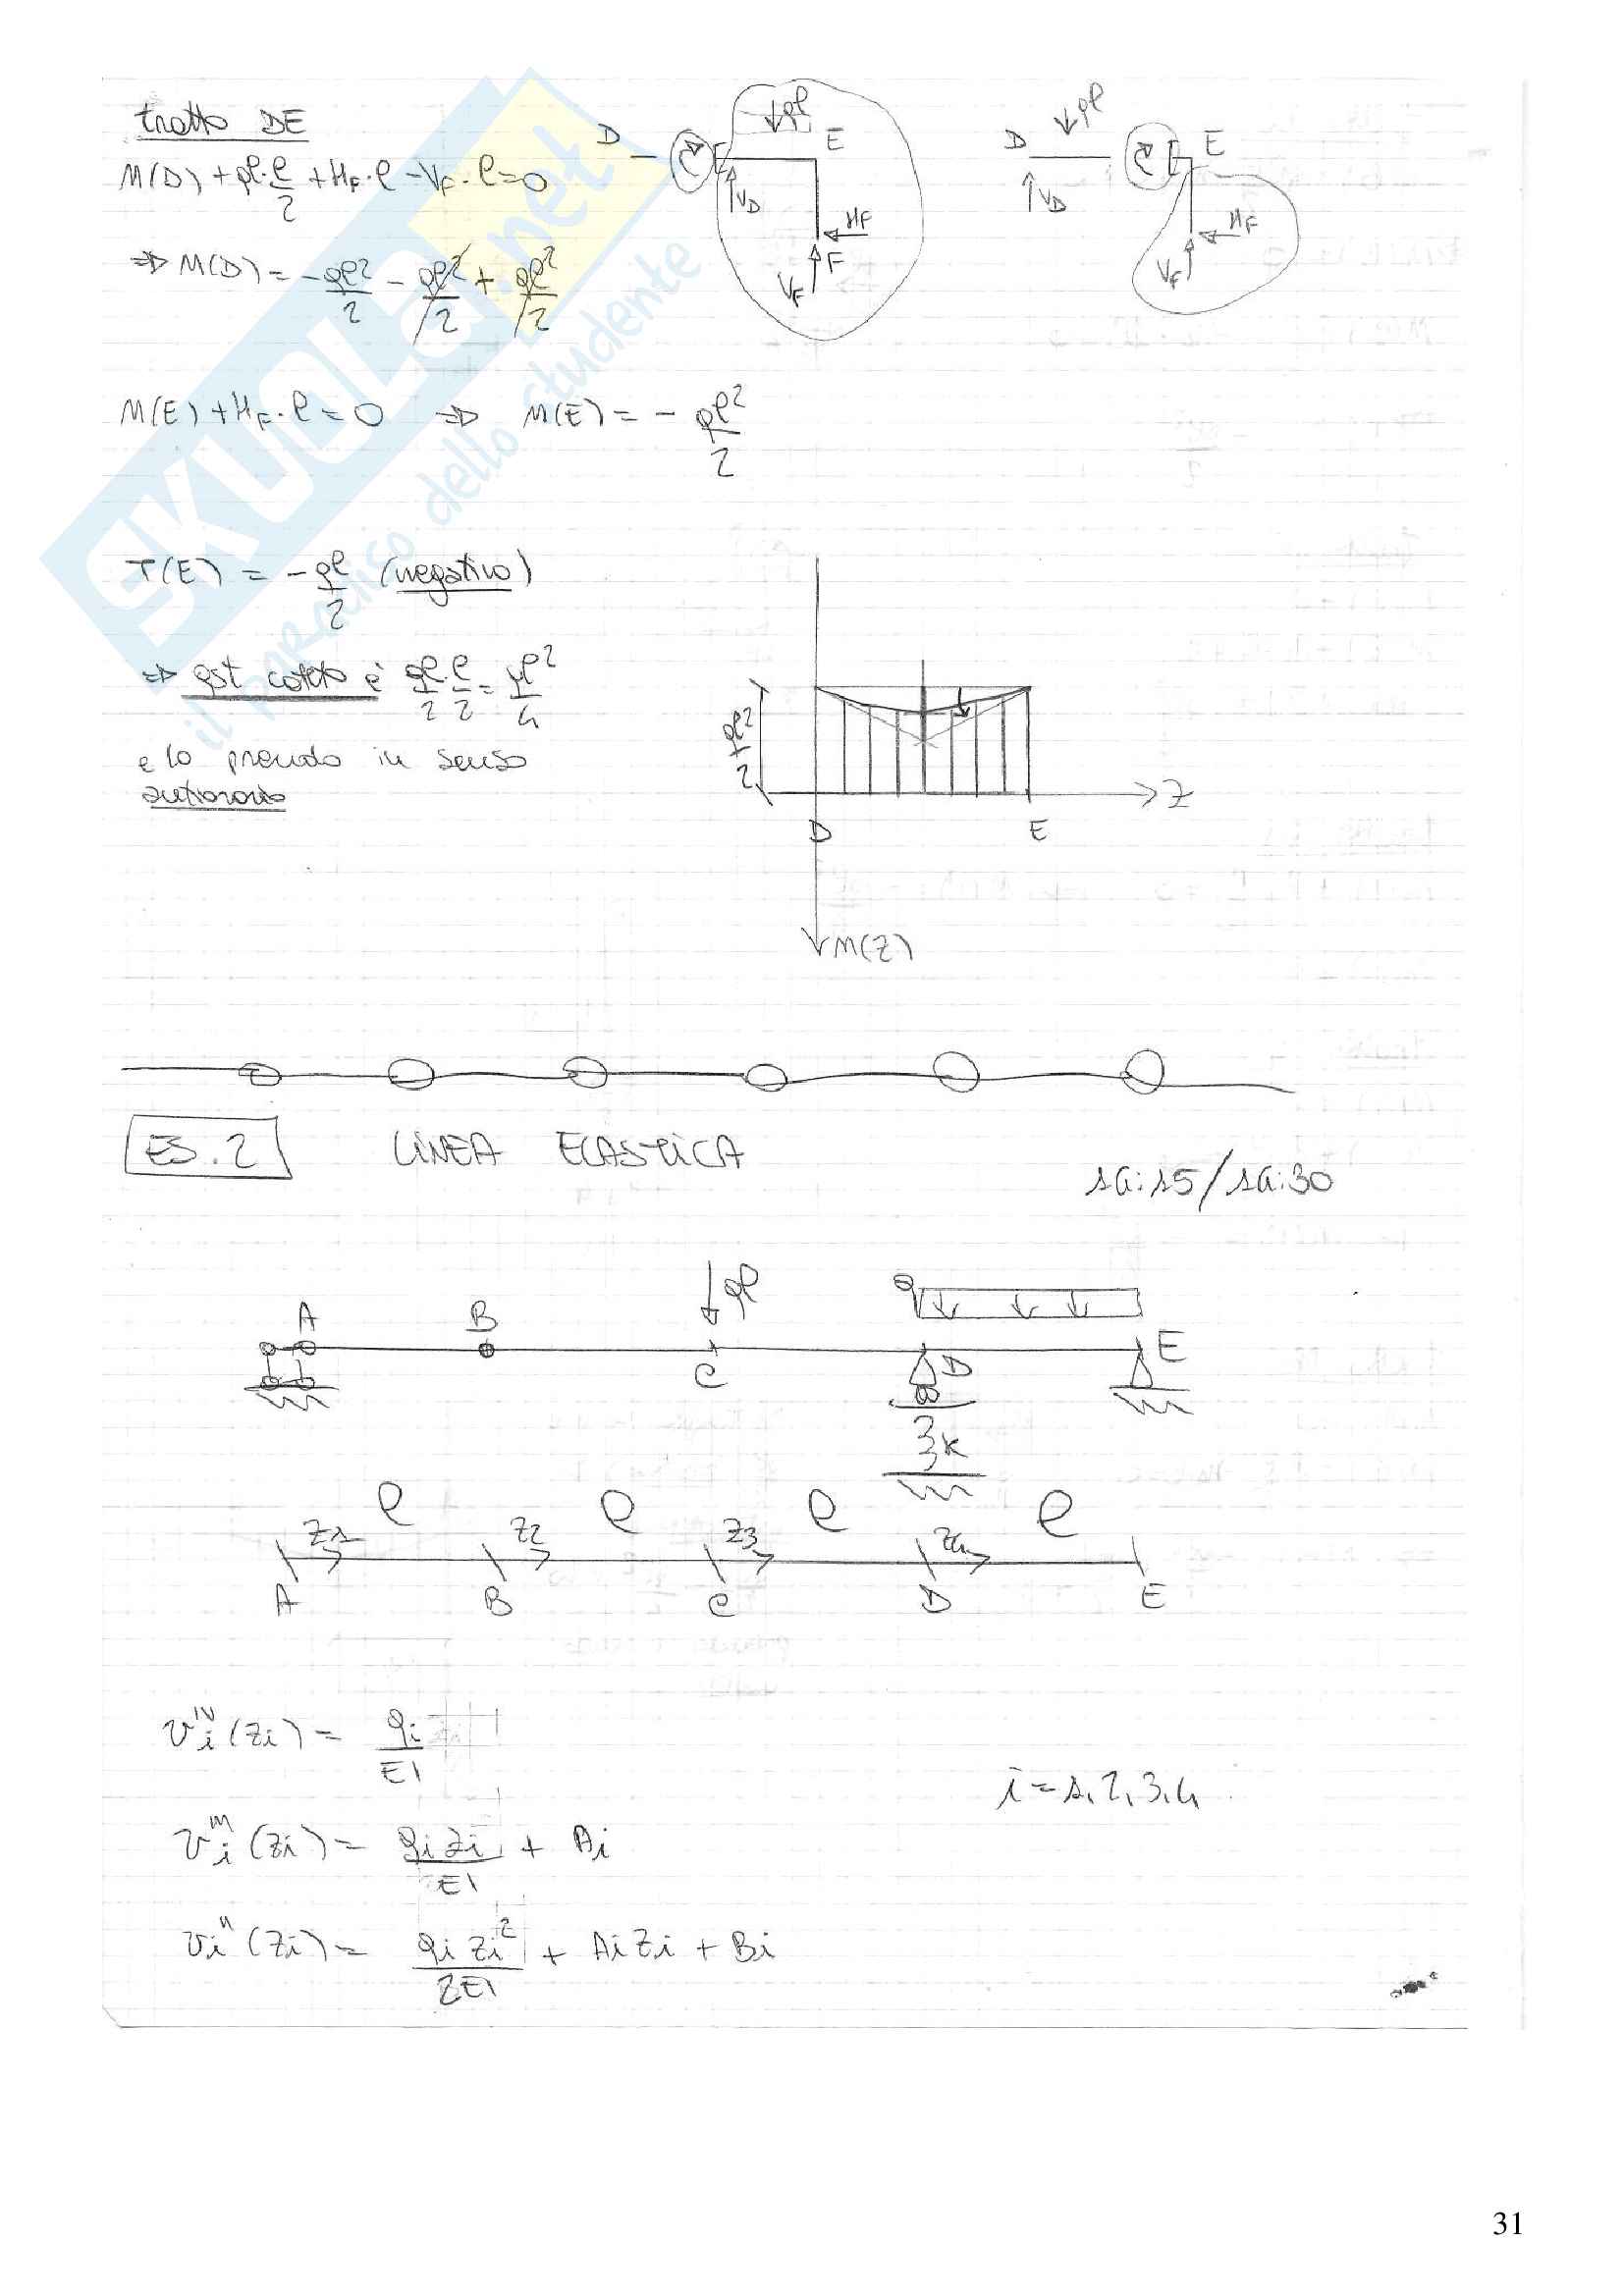 tratto DE
M(D) + ql·l/2 + HF·l - VF·l = 0
⇒ M(D) = - ql²/2 - ql²/2 + ql²/2
D E ql VD HF F VF
D ql E VD HF VF
M(E) + HF·l = 0 ⇒ M(E) = - ql²/2
T(E) = - ql/2 (negativo)
⇒ qst cateto è ql/2 · l/2 = ql²/4
e lo prendo in senso
antiorario
ql²/2
Z
D E
M(Z)
ES.2 LINEA ELASTICA
16:15/16:30
A B C ql q D E
3K
l l l l
Z1 Z2 Z3 Z4
A B C D E
vi^IV (zi) = qi/EI
i = 1,2,3,4
vi''' (zi) = qi zi/EI + Ai
vi'' (zi) = qi zi²/2EI + Ai zi + Bi
SKUOLA.net
il paradiso dello studente
31